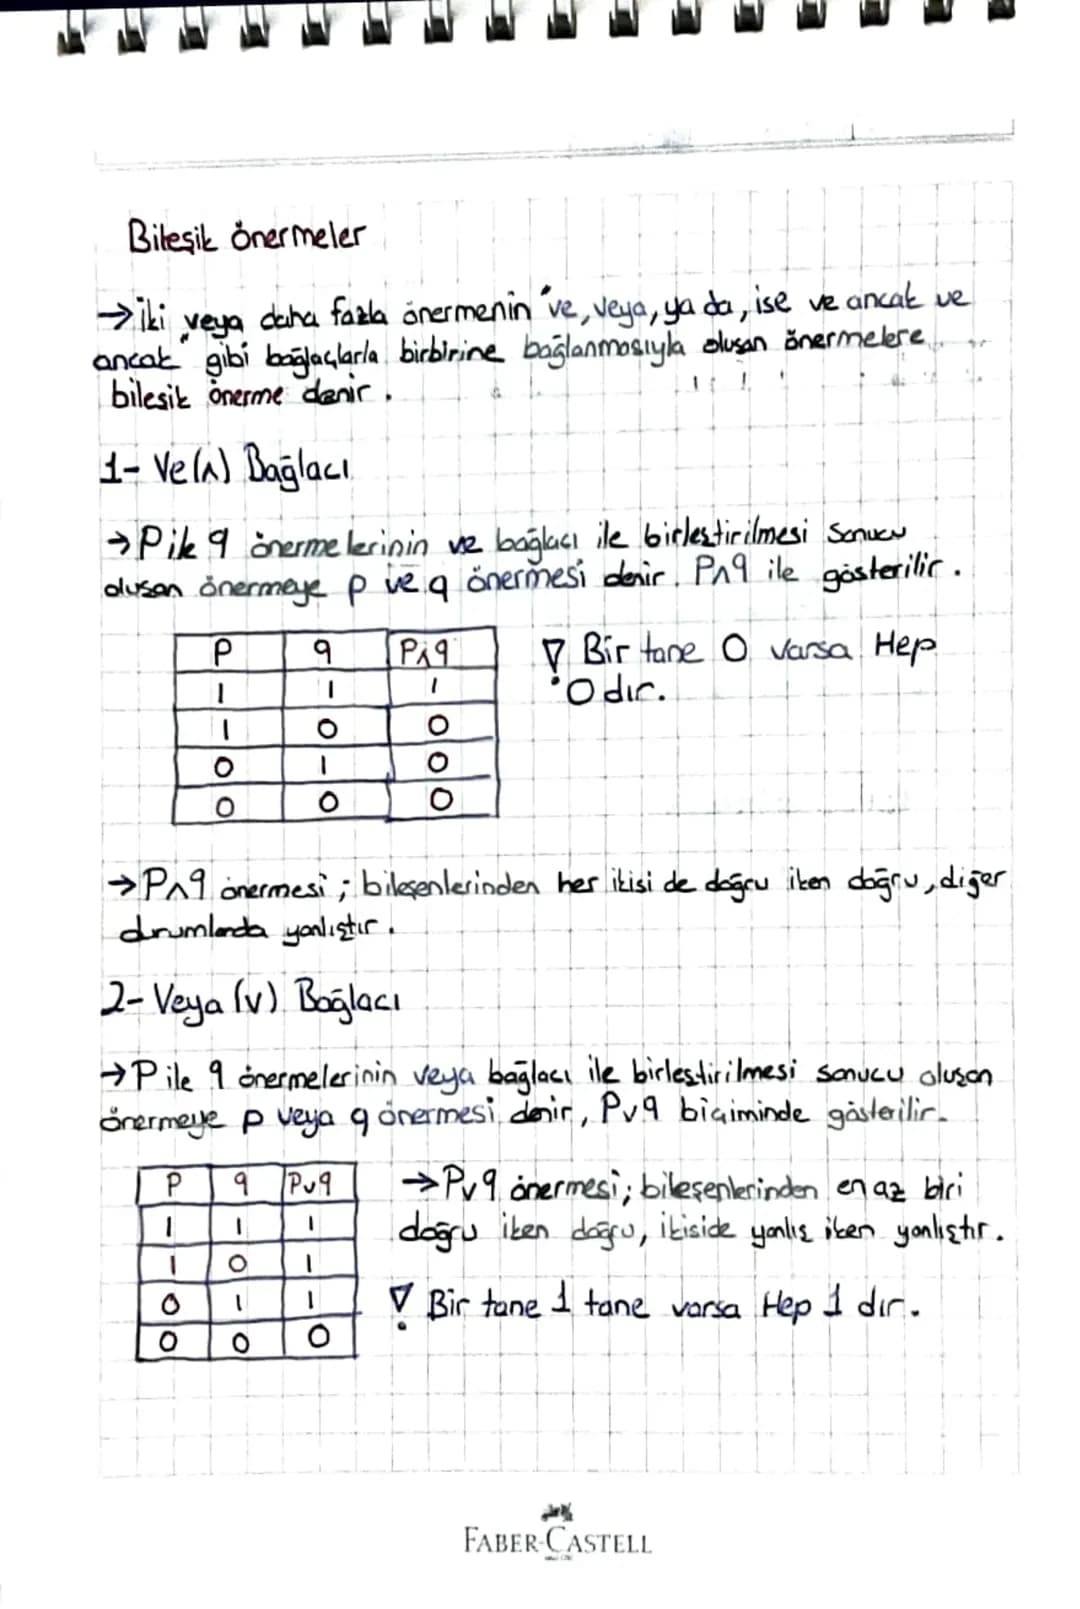 Bileşik önermeler
→İki veya daha fazla önermenin "ve, veya, ya da, ise ve ancak ve
ancak" gibi bağlaçlarla birbirine bağlanmasıyla oluşan önermelere
bileşik önerme denir.
1- Ve(∧) Bağlacı
→P ile q önermelerinin ve bağlacı ile birleştirilmesi sonucu
oluşan önermeye p ve q önermesi denir. P∧q ile gösterilir.
P q P∧q
1 1 1
1 0 0
0 1 0
0 0 0
! Bir tane 0 varsa Hep
0 dır.
→P∧q önermesi; bileşenlerinden her ikisi de doğru iken doğru, diğer
durumlarda yanlıştır.
2- Veya (∨) Bağlacı
→P ile q önermelerinin veya bağlacı ile birleştirilmesi sonucu oluşan
önermeye p veya q önermesi denir, P∨q biçiminde gösterilir.
P q P∨q
1 1 1
1 0 1
0 1 1
0 0 0
→P∨q önermesi; bileşenlerinden en az biri
doğru iken doğru, ikiside yanlış iken yanlıştır.
! Bir tane 1 tane varsa Hep 1 dır.
FABER-CASTELL